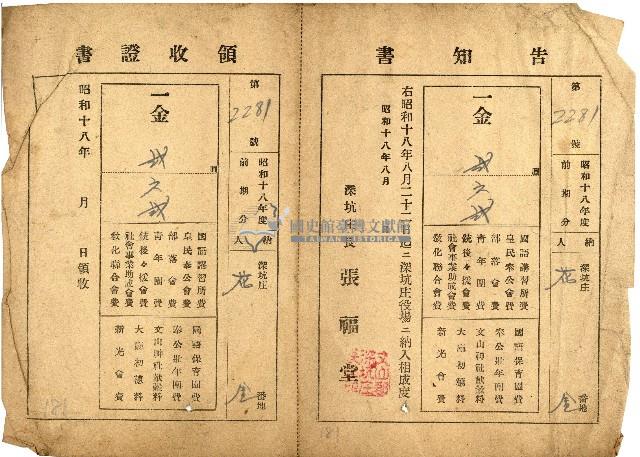 告知書
第2281號
昭和十八年度
前期分
納人
深坑庄
番地
一金
圓
國語講習所費
皇民奉公會費
部落會費
青年團費
銃後々援會費
社會事業助成會費
敎化聯合會費
國語保育園費
奉公壯年團費
文山神社獻穀料
大麻初穗料
新光會費
右昭和十八年八月二十
深坑庄役場ニ納入相成度
昭和十八年八月
深坑庄長 張福堂
181
領收證書
第2281號
昭和十八年度
前期分
納人
深坑庄
番地
一金
圓
國語講習所費
皇民奉公會費
部落會費
青年團費
銃後々援會費
社會事業助成會費
敎化聯合會費
國語保育園費
奉公壯年團費
文山神社獻穀料
大麻初穗料
新光會費
昭和十八年 月 日領收
181
國史館臺灣文獻館
TAIWAN HISTORICA